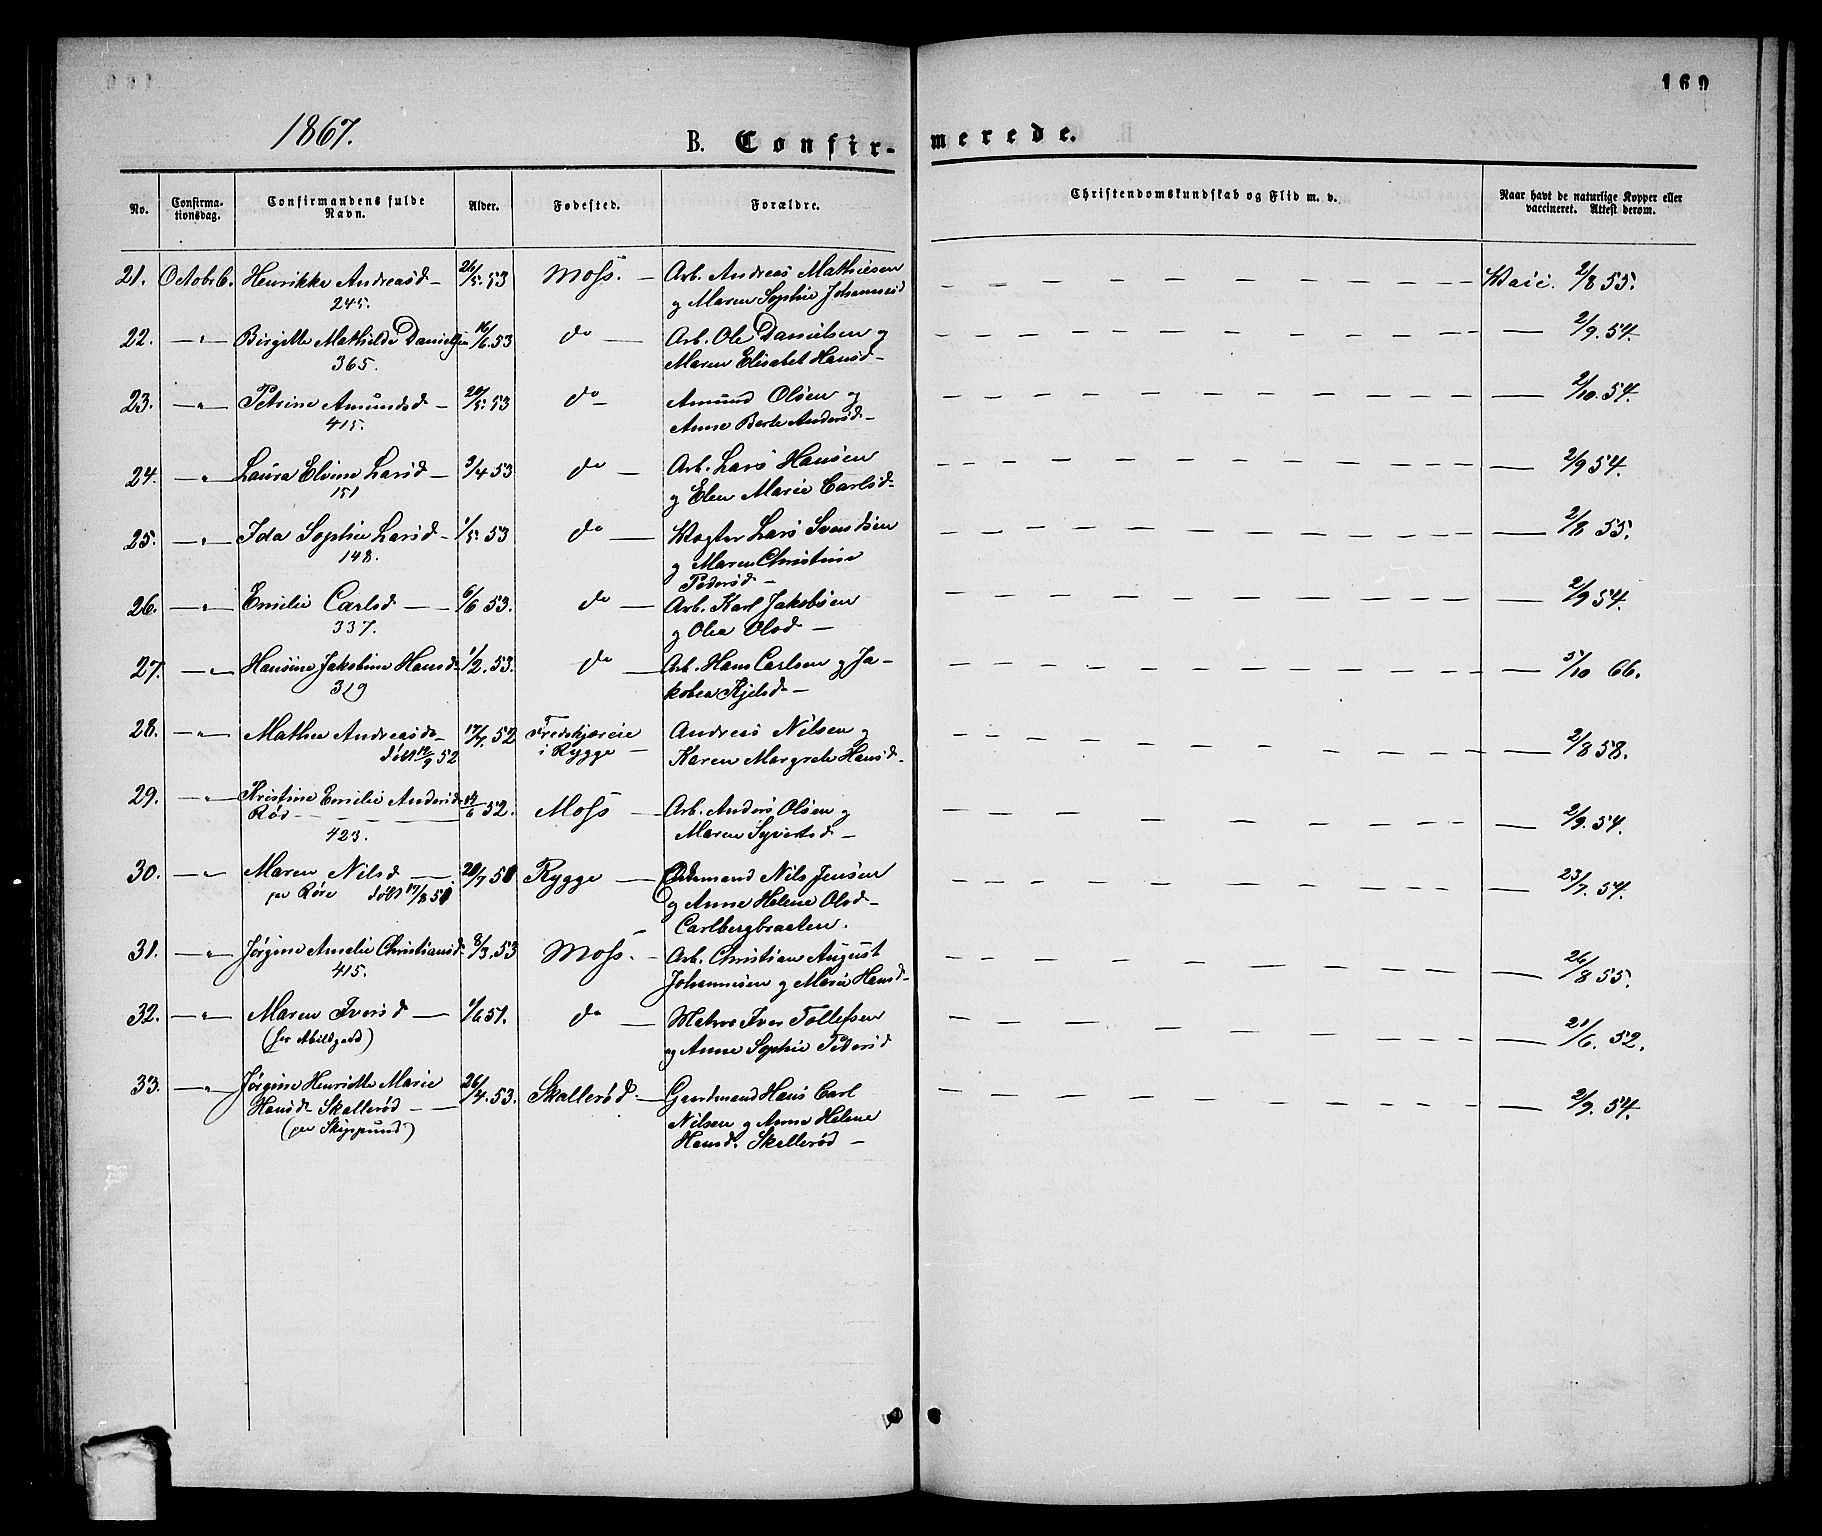 169
1867.
B. Confir-
merede.
No.
Confirma-
tionsdag.
Confirmandens fulde
Navn.
Alder.
Fødested.
Forældre.
Christendomskundskab og Flid m. v.
Naar havt de naturlige Kopper eller
vaccineret. Attest derom.
21. Octobr 6. Henrikke Andreasd – 26/5. 53 Moss. – Arb. Andreas Mathiesen – – – Vacc. 2/8 55.
245. og Maren Sophie Johannesd
22. — " — Birgitte Mathilde Danielsen 16/6. 53 do — Arb. Ole Danielsen og — 2/9. 54.
365. Maren Elisabet Hansd –
23. — " — Petrine Amundsd – 20/5. 53 do – Amund Olsen og — 2/10. 54.
415. Anne Berte Andersd –
24. — " Laura Elvine Larsd – 3/4 53 do — Arb. Lars Hansen — 2/9 54.
151 og Elen Marie Carlsd –
25. — " — Ida Sophie Larsd – 1/5. 53 do — Vægter Lars Svendsen — 2/8 55.
148. og Maren Christine
Pedersd –
26. — " Emilie Carlsd — 6/6 53. do — Arb. Karl Jakobsen — 2/9 54.
337. og Olea Olsd –
27. — " — Hansine Jakobine Hansd – 1/2. 53. do Arb. Hans Carlsen og Ja- — 5/10 66.
319 kobea Kjelsd –
28. — " — Mathea Andreasd – 17/7. 52 Fredskjæreie Andreas Nilsen og — 2/8 58.
døbt 12/9 52 i Rygge — Karen Margrete Hansd –
29. — " Kristine Emilie Andersd 14/6 52. Moss Arb. Anders Olsen og — 2/9. 54.
Rød
423. Maren Syvertsd –
30. — " — Maren Nilsd — 20/7 51 Rygge — Nils Jensen — 23/7. 54.
pr Røre døbt 17/8 51 og Anne Helene Olsd –
Carlbergbraaten.
31. — " — Jørgine Amalie Christiansd 8/3. 53 Moss. – Arb. Christian August — 26/8 55.
415. Johannesen og Marie Hansd –
32. — " — Maren Iversd — 1/6 51. do — Matros Iver Tollefsen — 21/6. 52.
(for Abildgaard) og Anne Sophie Pedersd
33. — " Jørgine Henriette Marie 26/4. 53. Skallerød – Gaardmand Hans Carl — 2/9. 54.
Hansd – Skallerød — Nilsen og Anne Helene
(pr Skippund) Hansd. Skallerød –